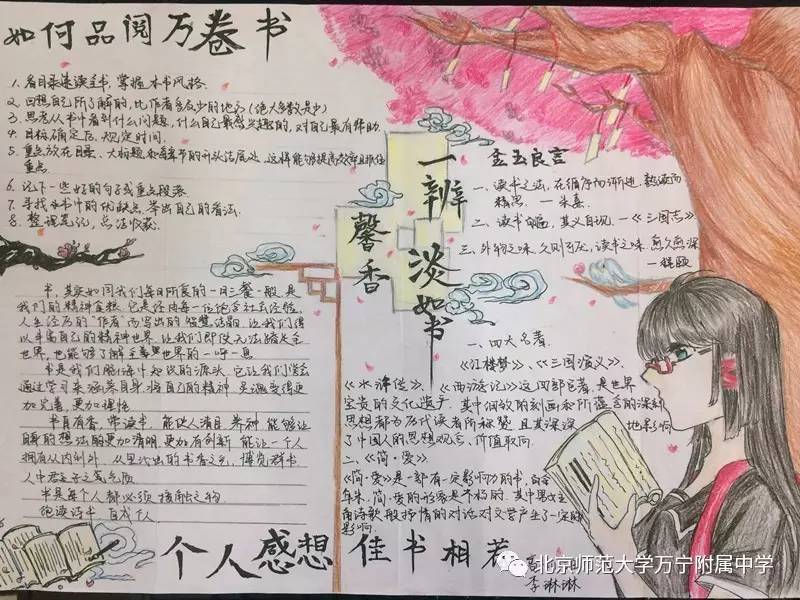 如何品阅万卷书
1. 看目录速读全书，掌握本书风格.
2. 回想自己所了解的，比作者多及少的地方(绝大多数是少)
3. 思考从书中看到什么问题，什么自己最感兴趣的，对自己最有帮助.
4. 目标确定后，规定时间.
5. 重点放在目录、大标题和每章节的开头结尾处，这样能够提高效率且抓住
重点
6. 记下一些好的句子或重点段落
7. 寻找本书中的优缺点，举出自己的看法.
8. 整理笔记，总结收获.
一辨馨香
淡如书
金玉良言
一、读书之法，在循序而渐进，熟读而
精思. 一朱熹.
二、读书百遍，其义自现. 一《三国志》.
三、外物之味，久则可厌，读书之味，愈久愈深
一程颐
书，其实如同我们每日所食的一日三餐一般，是
我们的精神食粮，它是经由每一位饱含社会经验，
人生经历的"作者"而写出的智慧结晶，让我们得
以丰富自己的精神世界，让我们即使无法踏足全
世界，也能够了解至世界的一呼一息
书是我们脑海中知识的源头，它让我们学会
通过学习来涵养自身，将自己的精神灵魂变得更
加完善，更加理性
书自有香，常读书，能使人清目养神，能够让
自解的想法的更加清明，更加有创新，能让一个人
拥有从内到外，从里透出的书香之气，博览群书
人中君子之气质
书是每个人都必须接触之物.
饱读诗书 自成仁
个人感想
一、四大名著.
《红楼梦》、《三国演义》.
《水浒传》、《西游记》这四部巨著，是世界
宝贵的文化遗产. 其中细致的刻画和所蕴含的深刻
思想都为历代读者所称赞且其深深地影响
了中国人的思想观念、价值取向.
二、《简·爱》.
《简·爱》是一部有一定影响的书，百余
年来，简·爱的形象是不朽的. 其中男女主
角诗歌般抒情的对话对文学产生了一定的
影响.
佳书相荐
李琳琳
北京师范大学万宁附属中学